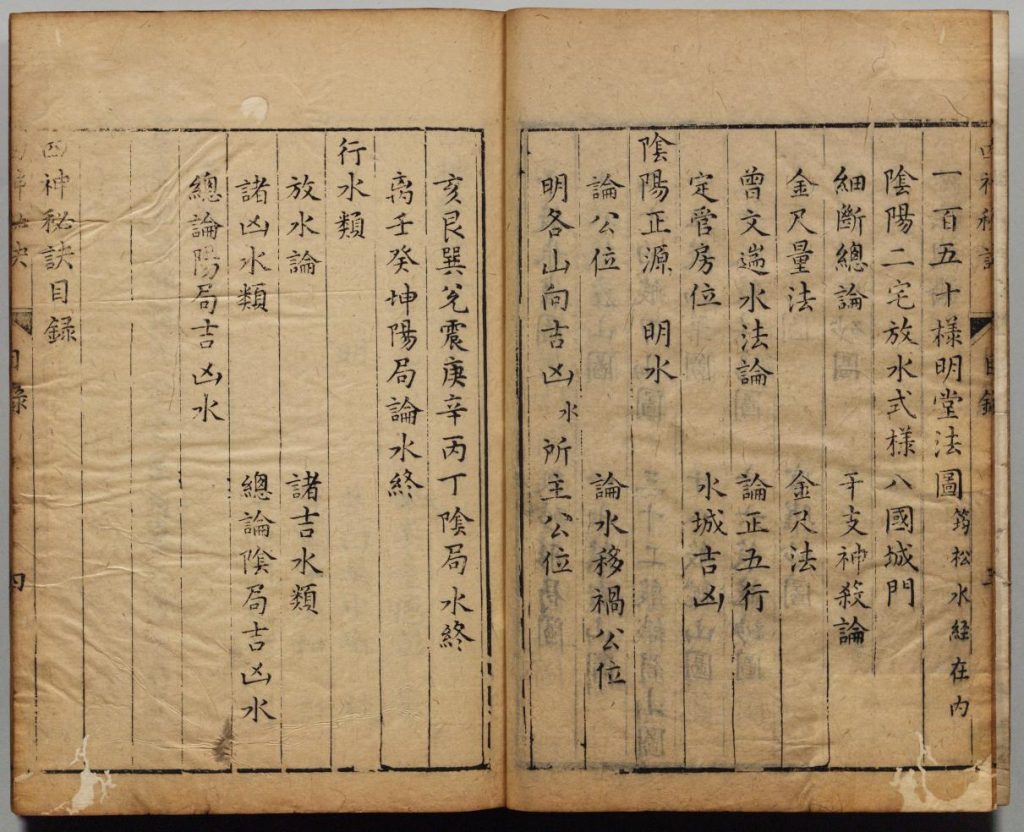 一百五十樣明堂法圖 筠松水経在內
陰陽二宅放水式樣八國城門
細斷總論 干支神殺論
金尺量法 金尺法
曾文遄水法論 論正五行
定管房位 水城吉凶
陰陽正源 明水
論公位 論水移禍公位
明各山向吉凶水所主公位
亥艮巽兊震庚辛丙丁陰局水終
离壬癸坤陽局論水終
行水類
放水論 諸吉水類
諸凶水類 總論陰局吉凶水
總論陽局吉凶水
四神秘訣目録